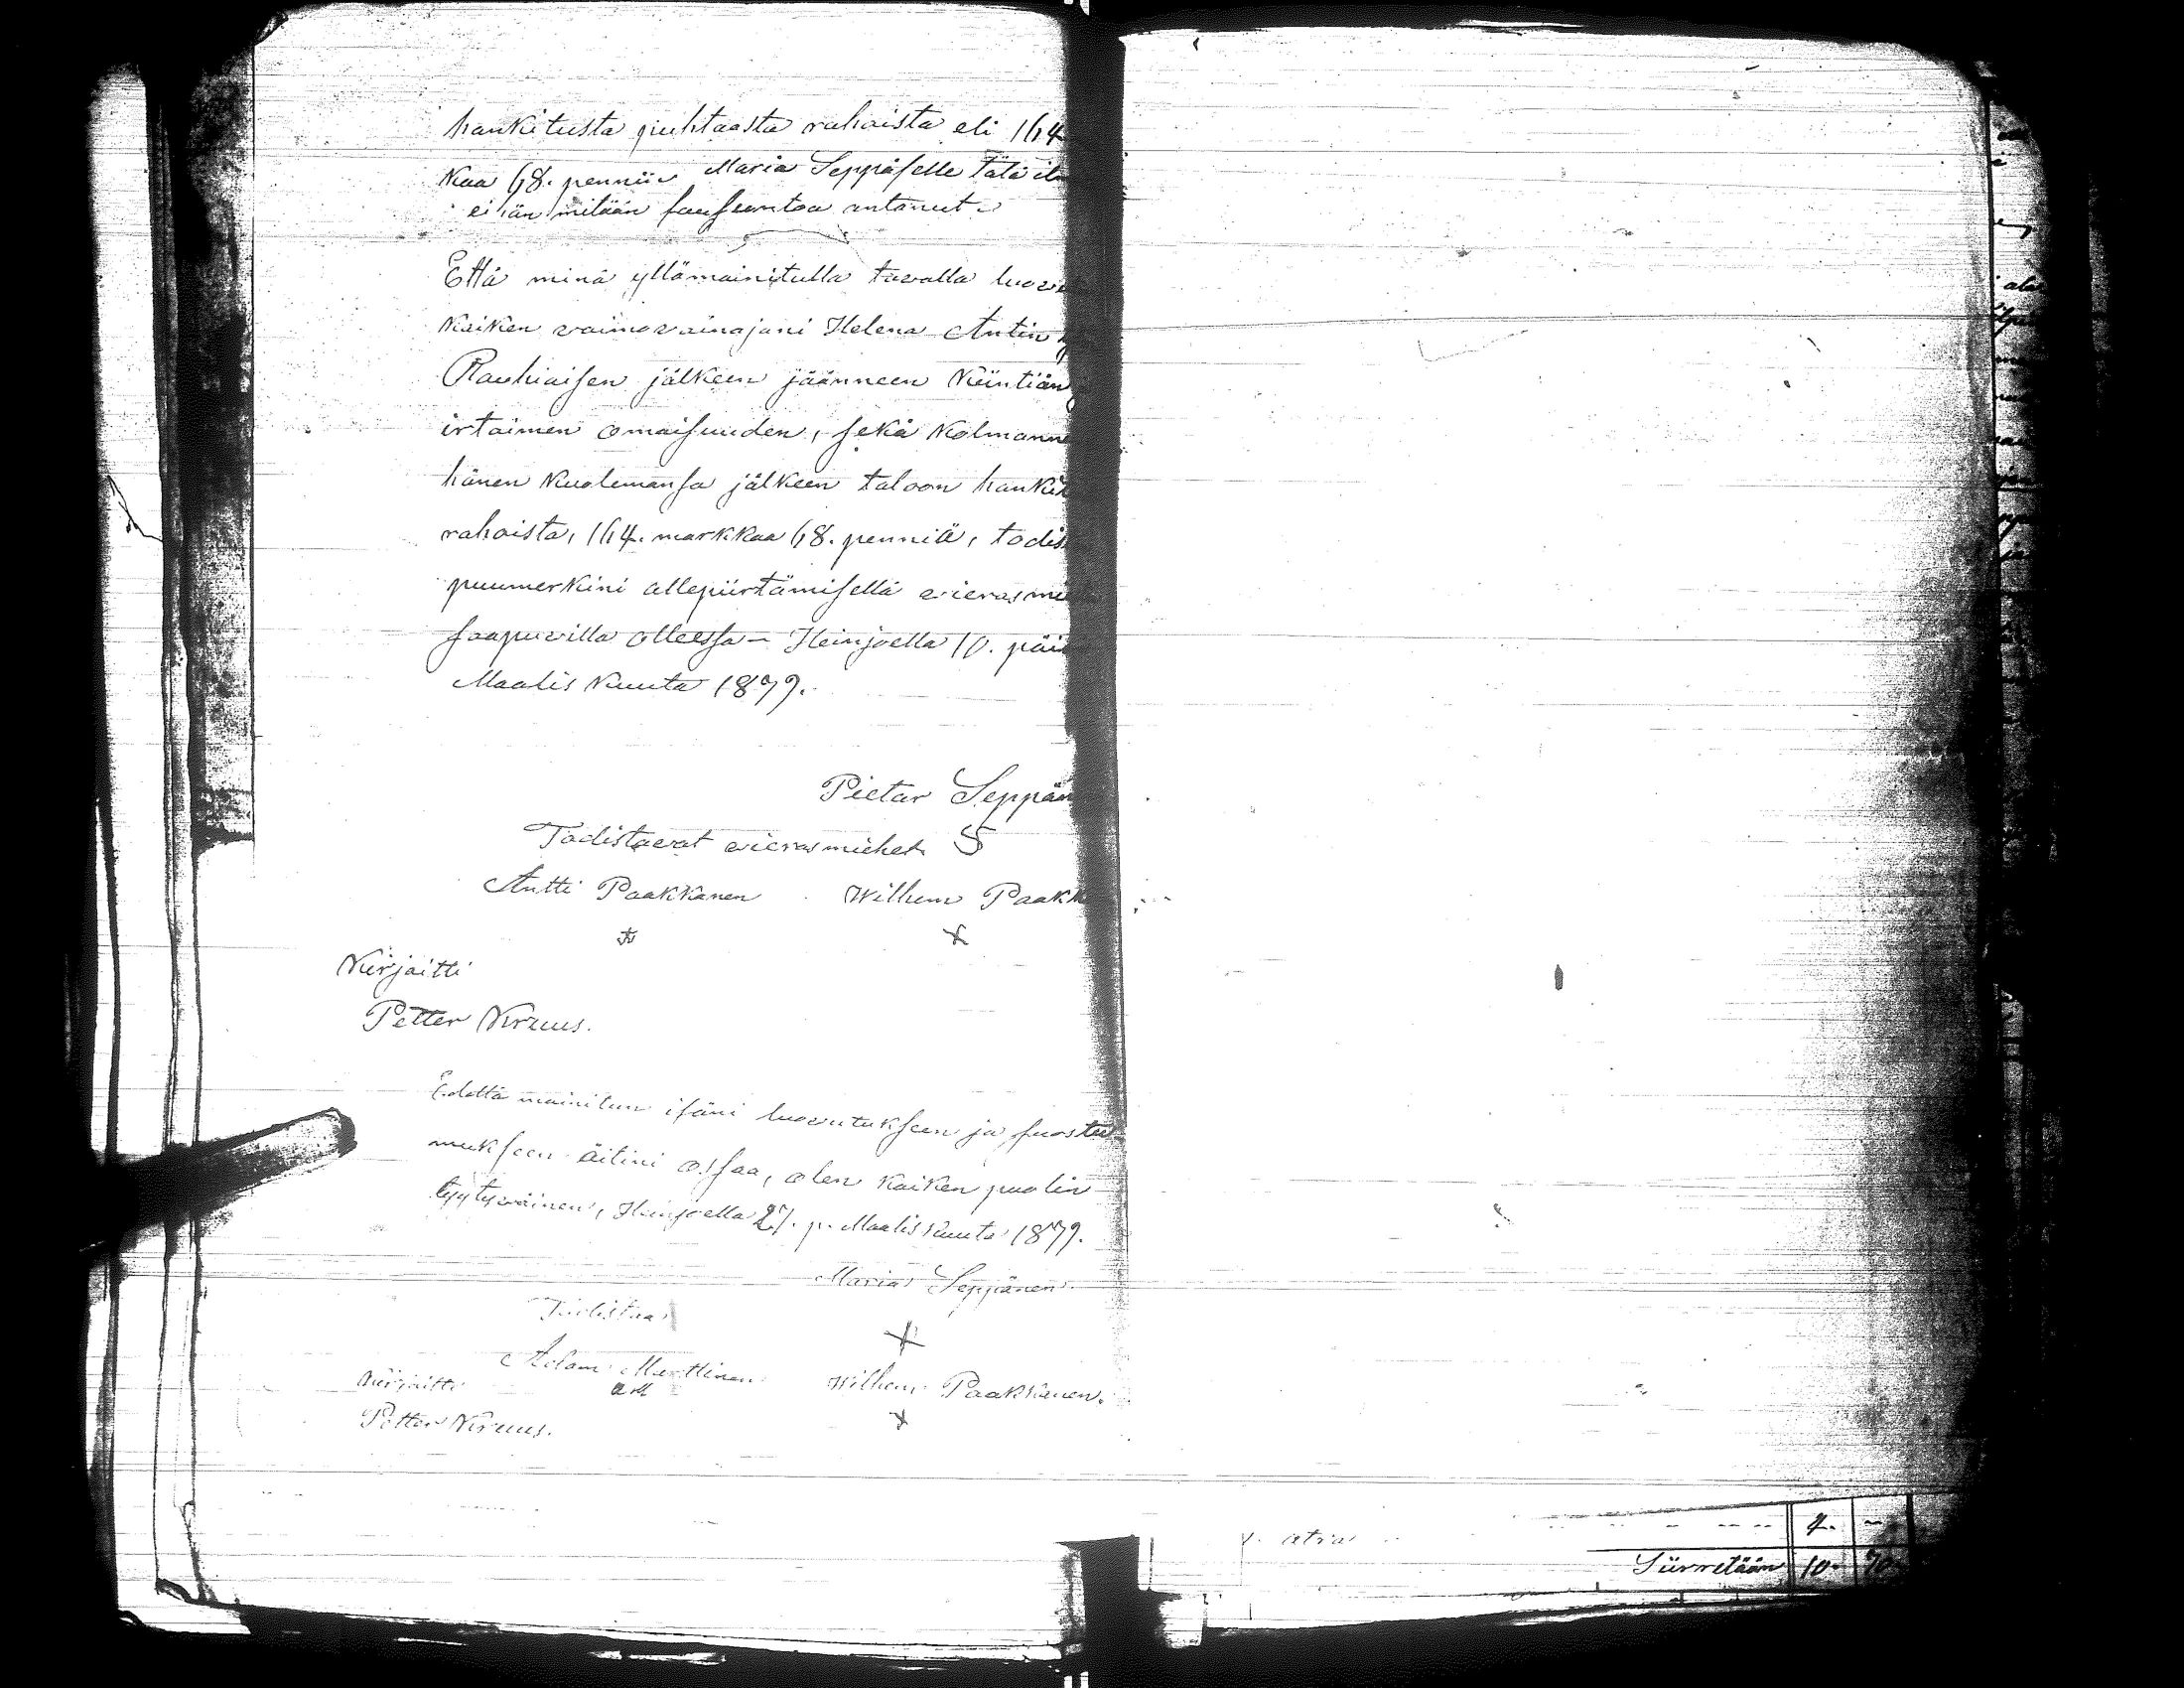 hankitusta puhtaasta rahaista eli 164
kaa 68. penniä Maria Seppäselle tätä
ei än mitään suusuntoa antanut.
Että minä yllämainitulla tavalla luovu
kaiken vaimovainajani Helena Antin
Rauhiaisen jälkeen jäänneen kiintiän
irtaimen omaisuuden, sekä kolmanne
hänen kuolemansa jälkeen taloon hankit
rahaista, 164. markkaa 68. penniä, todis
puumerkini allepiirtämisellä vierasmie
saapuvilla ollessa – Heinjoella 10. päi
Maalis kuuta 1879.
Pietar Seppän
Todistaevat vierasmiehet. S
Antti Paakkanen Wilhem Paakk
Kirjoitti
Petter Kiruus.
Edellä mainitun isäni luovutukseen ja suostu
mukseen äitini ossaa, olen kaiken puolin
tyytyväinen, Heinjoella 27. p. Maaliskuuta 1879.
Maria Seppänen.
Todistaa
X
Adam Marttinen Wilhem Paakkanen.
Kirjoitti AM X
Petter Kiruus.
4. –
Siirretään 10. 70